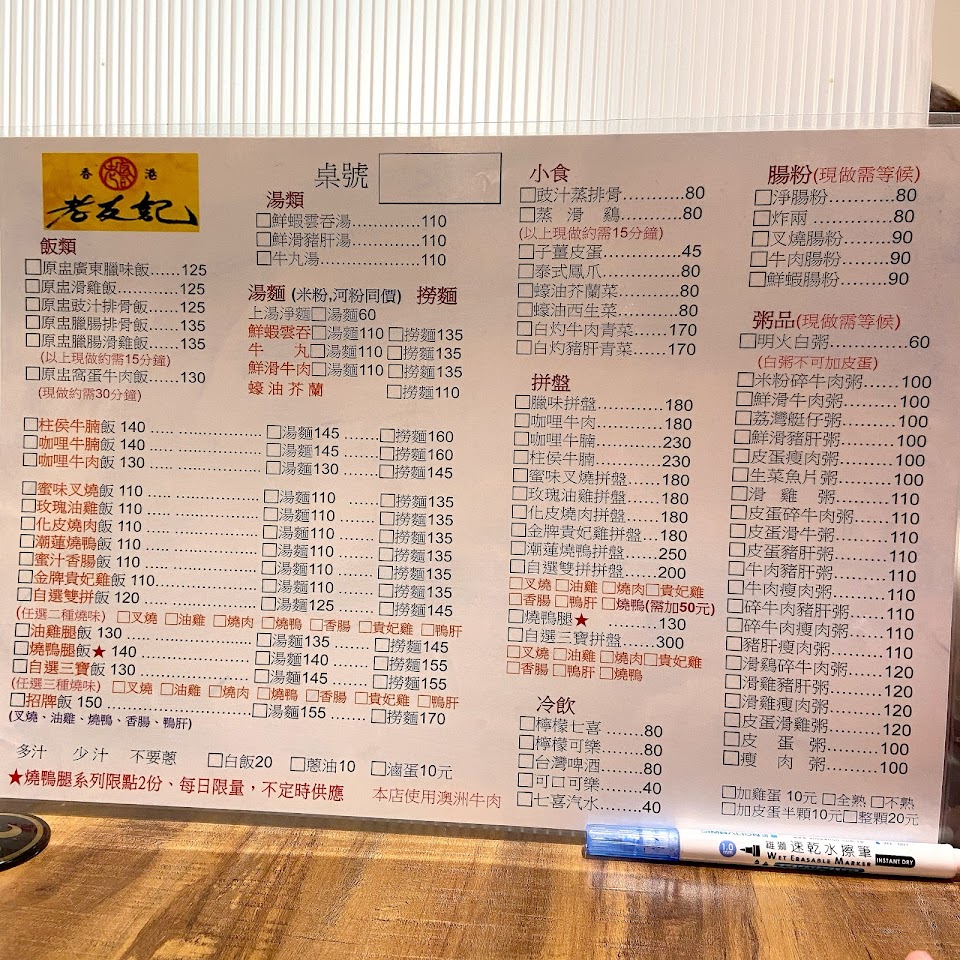 香港
老友記
桌號
飯類
□原盅廣東臘味飯......125
□原盅滑雞飯..............125
□原盅豉汁排骨飯......125
□原盅臘腸排骨飯......135
□原盅臘腸滑雞飯......135
(以上現做約需15分鐘)
□原盅窩蛋牛肉飯......130
(現做約需30分鐘)
湯類
□鮮蝦雲吞湯............110
□鮮滑豬肝湯............110
□牛丸湯....................110
湯麵 (米粉,河粉同價) 撈麵
上湯淨麵□湯麵60
鮮蝦雲吞□湯麵110 □撈麵135
牛 丸□湯麵110 □撈麵135
鮮滑牛肉□湯麵110 □撈麵135
蠔油芥蘭 □撈麵110
□柱侯牛腩飯 140 ........ □湯麵145 ...... □撈麵160
□咖哩牛腩飯 140 ........ □湯麵145 ...... □撈麵160
□咖哩牛肉飯 130 ........ □湯麵130 ...... □撈麵145
□蜜味叉燒飯 110 ........ □湯麵110 ...... □撈麵135
□玫瑰油雞飯 110 ........ □湯麵110 ...... □撈麵135
□化皮燒肉飯 110 ........ □湯麵110 ...... □撈麵135
□潮蓮燒鴨飯 110 ........ □湯麵110 ...... □撈麵135
□蜜汁香腸飯 110 ........ □湯麵110 ...... □撈麵135
□金牌貴妃雞飯 110...... □湯麵110 ...... □撈麵135
□自選雙拼飯 120 ........ □湯麵125 ...... □撈麵145
(任選二種燒味) □叉燒 □油雞 □燒肉 □燒鴨 □香腸 □貴妃雞 □鴨肝
□油雞腿飯 130 ........ □湯麵135 ...... □撈麵145
□燒鴨腿飯★ 140 ........ □湯麵140 ...... □撈麵155
□自選三寶飯 130 ........ □湯麵145 ...... □撈麵155
(任選三種燒味) □叉燒 □油雞 □燒肉 □燒鴨 □香腸 □貴妃雞 □鴨肝
□招牌飯 150 ........ □湯麵155 ...... □撈麵170
(叉燒、油雞、燒鴨、香腸、鴨肝)
多汁 少汁 不要蔥 □白飯20 □蔥油10 □滷蛋10元
★燒鴨腿系列限點2份、每日限量，不定時供應 本店使用澳洲牛肉
小食
□豉汁蒸排骨............80
□蒸 滑 雞..............80
(以上現做約需15分鐘)
□子薑皮蛋..............45
□泰式鳳爪..............80
□蠔油芥蘭菜............80
□蠔油西生菜............80
□白灼牛肉青菜......170
□白灼豬肝青菜......170
拼盤
□臘味拼盤..............180
□咖哩牛肉..............180
□咖哩牛腩..............230
□柱侯牛腩..............230
□蜜味叉燒拼盤......180
□玫瑰油雞拼盤......180
□化皮燒肉拼盤......180
□金牌貴妃雞拼盤...180
□潮蓮燒鴨拼盤......250
□自選雙拼拼盤......200
□叉燒 □油雞 □燒肉□貴妃雞
□香腸 □鴨肝 □燒鴨(需加50元)
□燒鴨腿★ ..............130
□自選三寶拼盤......300
□叉燒 □油雞 □燒肉□貴妃雞
□香腸 □鴨肝 □燒鴨
冷飲
□檸檬七喜..............80
□檸檬可樂..............80
□台灣啤酒..............80
□可口可樂..............40
□七喜汽水..............40
腸粉(現做需等候)
□淨腸粉..............80
□炸兩 ..............80
□叉燒腸粉..........90
□牛肉腸粉..........90
□鮮蝦腸粉..........90
粥品(現做需等候)
□明火白粥..............60
(白粥不可加皮蛋)
□米粉碎牛肉粥......100
□鮮滑牛肉粥..........100
□荔灣艇仔粥..........100
□鮮滑豬肝粥..........100
□皮蛋瘦肉粥..........100
□生菜魚片粥..........100
□滑 雞 粥..........110
□皮蛋碎牛肉粥......110
□皮蛋滑牛粥..........110
□皮蛋豬肝粥..........110
□牛肉豬肝粥..........110
□牛肉瘦肉粥..........110
□碎牛肉豬肝粥......110
□碎牛肉瘦肉粥......110
□豬肝瘦肉粥..........110
□滑鷄碎牛肉粥......120
□滑雞豬肝粥..........120
□滑雞瘦肉粥..........120
□皮蛋滑雞粥..........120
□皮 蛋 粥..........100
□瘦 肉 粥..........100
□加雞蛋 10元 □全熟 □不熟
□加皮蛋半顆10元□整顆20元
1.0
雄獅 速乾水擦筆
WET ERASABLE MARKER
INSTANT DRY